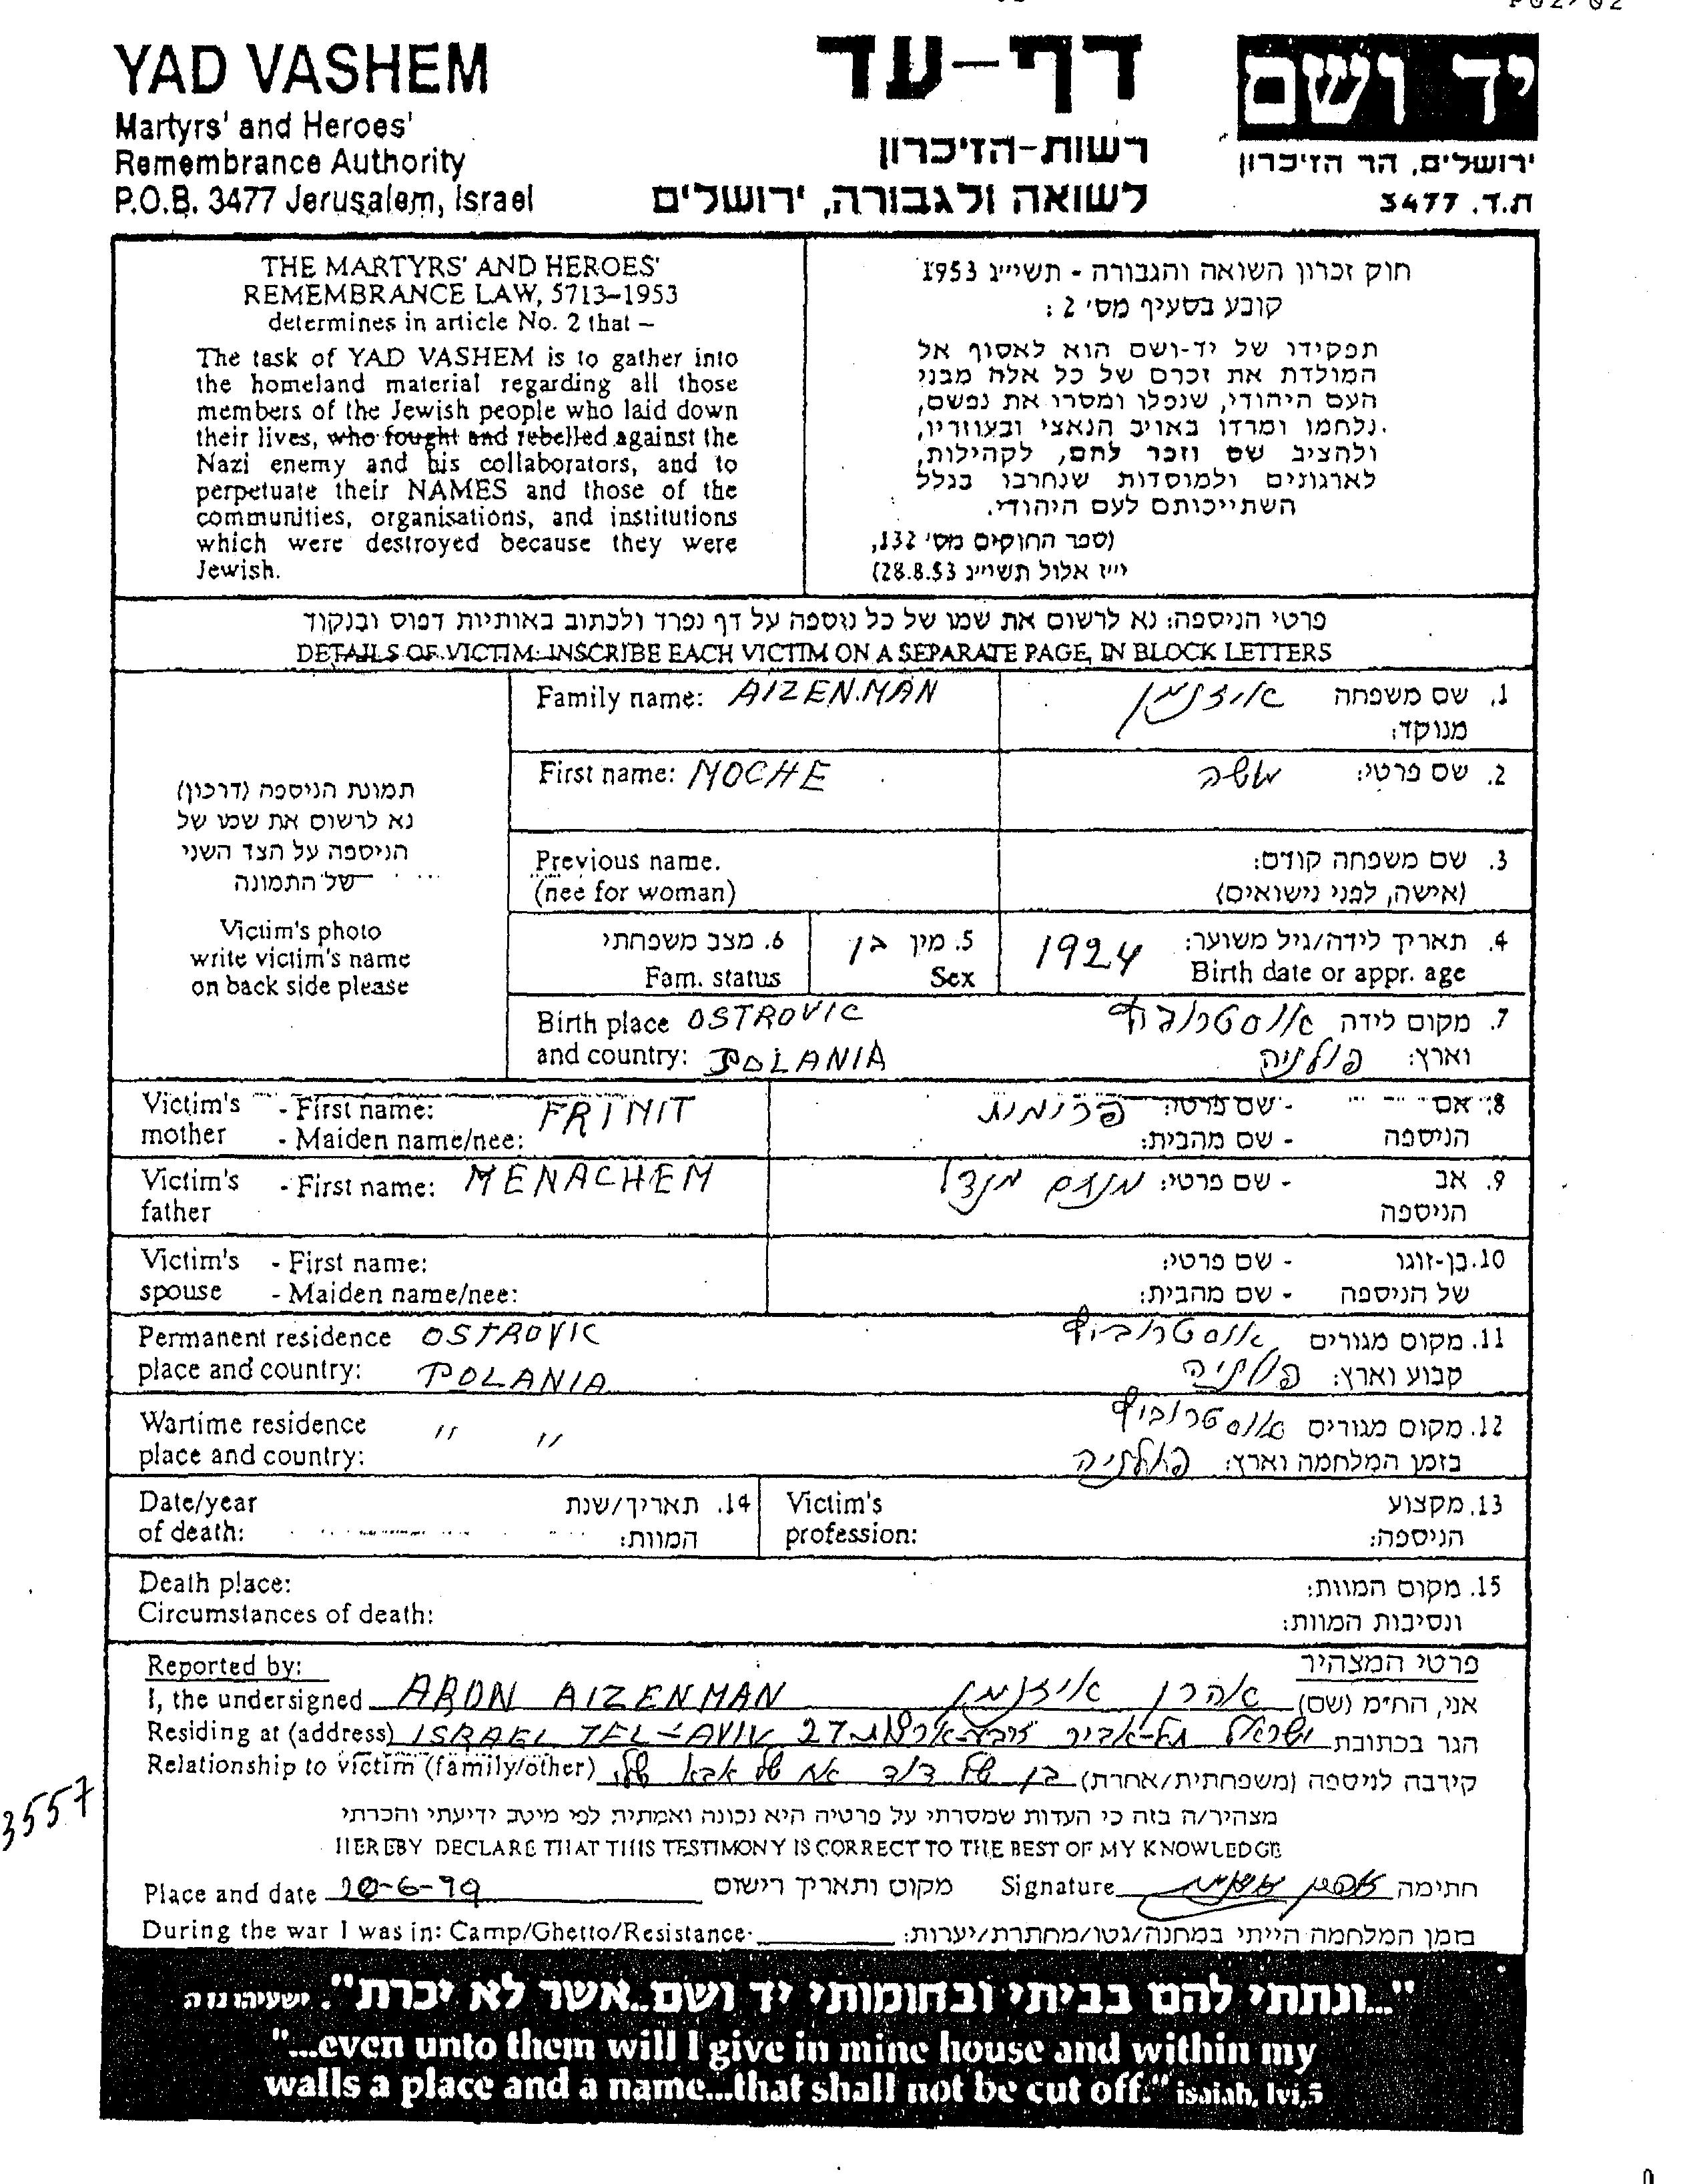 YAD VASHEM
Martyrs' and Heroes'
Remembrance Authority
P.O.B. 3477 Jerusalem, Israel
דף-עד
רשות-הזיכרון
לשואה ולגבורה, ירושלים
יד ושם
ירושלים, הר הזיכרון
ת.ד. 3477
THE MARTYRS' AND HEROES'
REMEMBRANCE LAW, 5713–1953
determines in article No. 2 that –
The task of YAD VASHEM is to gather into
the homeland material regarding all those
members of the Jewish people who laid down
their lives, who fought and rebelled against the
Nazi enemy and his collaborators, and to
perpetuate their NAMES and those of the
communities, organisations, and institutions
which were destroyed because they were
Jewish.
חוק זכרון השואה והגבורה - תשי״ג 1953
קובע בסעיף מס' 2 :
תפקידו של יד-ושם הוא לאסוף אל
המולדת את זכרם של כל אלה מבני
העם היהודי, שנפלו ומסרו את נפשם,
נלחמו ומרדו באויב הנאצי ובעוזריו,
ולהציב שם וזכר להם, לקהילות,
לארגונים ולמוסדות שנחרבו בגלל
השתייכותם לעם היהודי.
(ספר החוקים מס' 132,
י״ז אלול תשי״ג 28.8.53)
פרטי הניספה: נא לרשום את שמו של כל נוספה על דף נפרד ולכתוב באותיות דפוס ובנקוד
DETAILS OF VICTIM: INSCRIBE EACH VICTIM ON A SEPARATE PAGE, IN BLOCK LETTERS
תמונת הניספה (דרכון)
נא לרשום את שמו של
הניספה על הצד השני
של התמונה
Victim's photo
write victim's name
on back side please
Family name: AIZENMAN
1. שם משפחה איזנמן
מנוקד:
First name: MOCHE
2. שם פרטי: משה
Previous name.
(nee for woman)
3. שם משפחה קודם:
(אישה, לפני נישואים)
4. תאריך לידה/גיל משוער: 1924
Birth date or appr. age
5. מין בן
Sex
6. מצב משפחתי
Fam. status
Birth place OSTROVIC
and country: POLANIA
7. מקום לידה אוסטרוביץ
וארץ: פולניה
Victim's - First name: FRIMIT
mother - Maiden name/nee:
8. אם - שם פרטי: פרימית
הניספה - שם מהבית:
Victim's - First name: MENACHEM
father
9. אב - שם פרטי: מנחם מנדל
הניספה
Victim's - First name:
spouse - Maiden name/nee:
10. בן-זוגו - שם פרטי:
של הניספה - שם מהבית:
Permanent residence OSTROVIC
place and country: POLANIA
11. מקום מגורים אוסטרוביץ
קבוע וארץ: פולניה
Wartime residence " "
place and country:
12. מקום מגורים אוסטרוביץ
בזמן המלחמה וארץ: פולניה
Date/year
of death:
14. תאריך/שנת
המוות:
Victim's
profession:
13. מקצוע
הניספה:
Death place:
Circumstances of death:
15. מקום המוות:
ונסיבות המוות:
Reported by:
פרטי המצהיר
I, the undersigned ARON AIZENMAN
אני, הח״מ (שם) אהרן איזנמן
Residing at (address) ISRAEL TEL-AVIV 27
הגר בכתובת ישראל תל-אביב
Relationship to victim (family/other)
קירבה לניספה (משפחתית/אחרת) בן של דוד אח של אבא שלי
מצהיר/ה בזה כי העדות שמסרתי על פרטיה היא נכונה ואמתית לפי מיטב ידיעתי והכרתי
HEREBY DECLARE THAT THIS TESTIMONY IS CORRECT TO THE BEST OF MY KNOWLEDGE
Place and date 20-6-99 מקום ותאריך רישום
Signature חתימה
During the war I was in: Camp/Ghetto/Resistance
בזמן המלחמה הייתי במחנה/גטו/מחתרת/יערות:
3557
"...ונתתי להם בביתי ובחומותי יד ושם..אשר לא יכרת". ישעיהו נו ה
"...even unto them will I give in mine house and within my
walls a place and a name...that shall not be cut off." isaiah, lvi,5